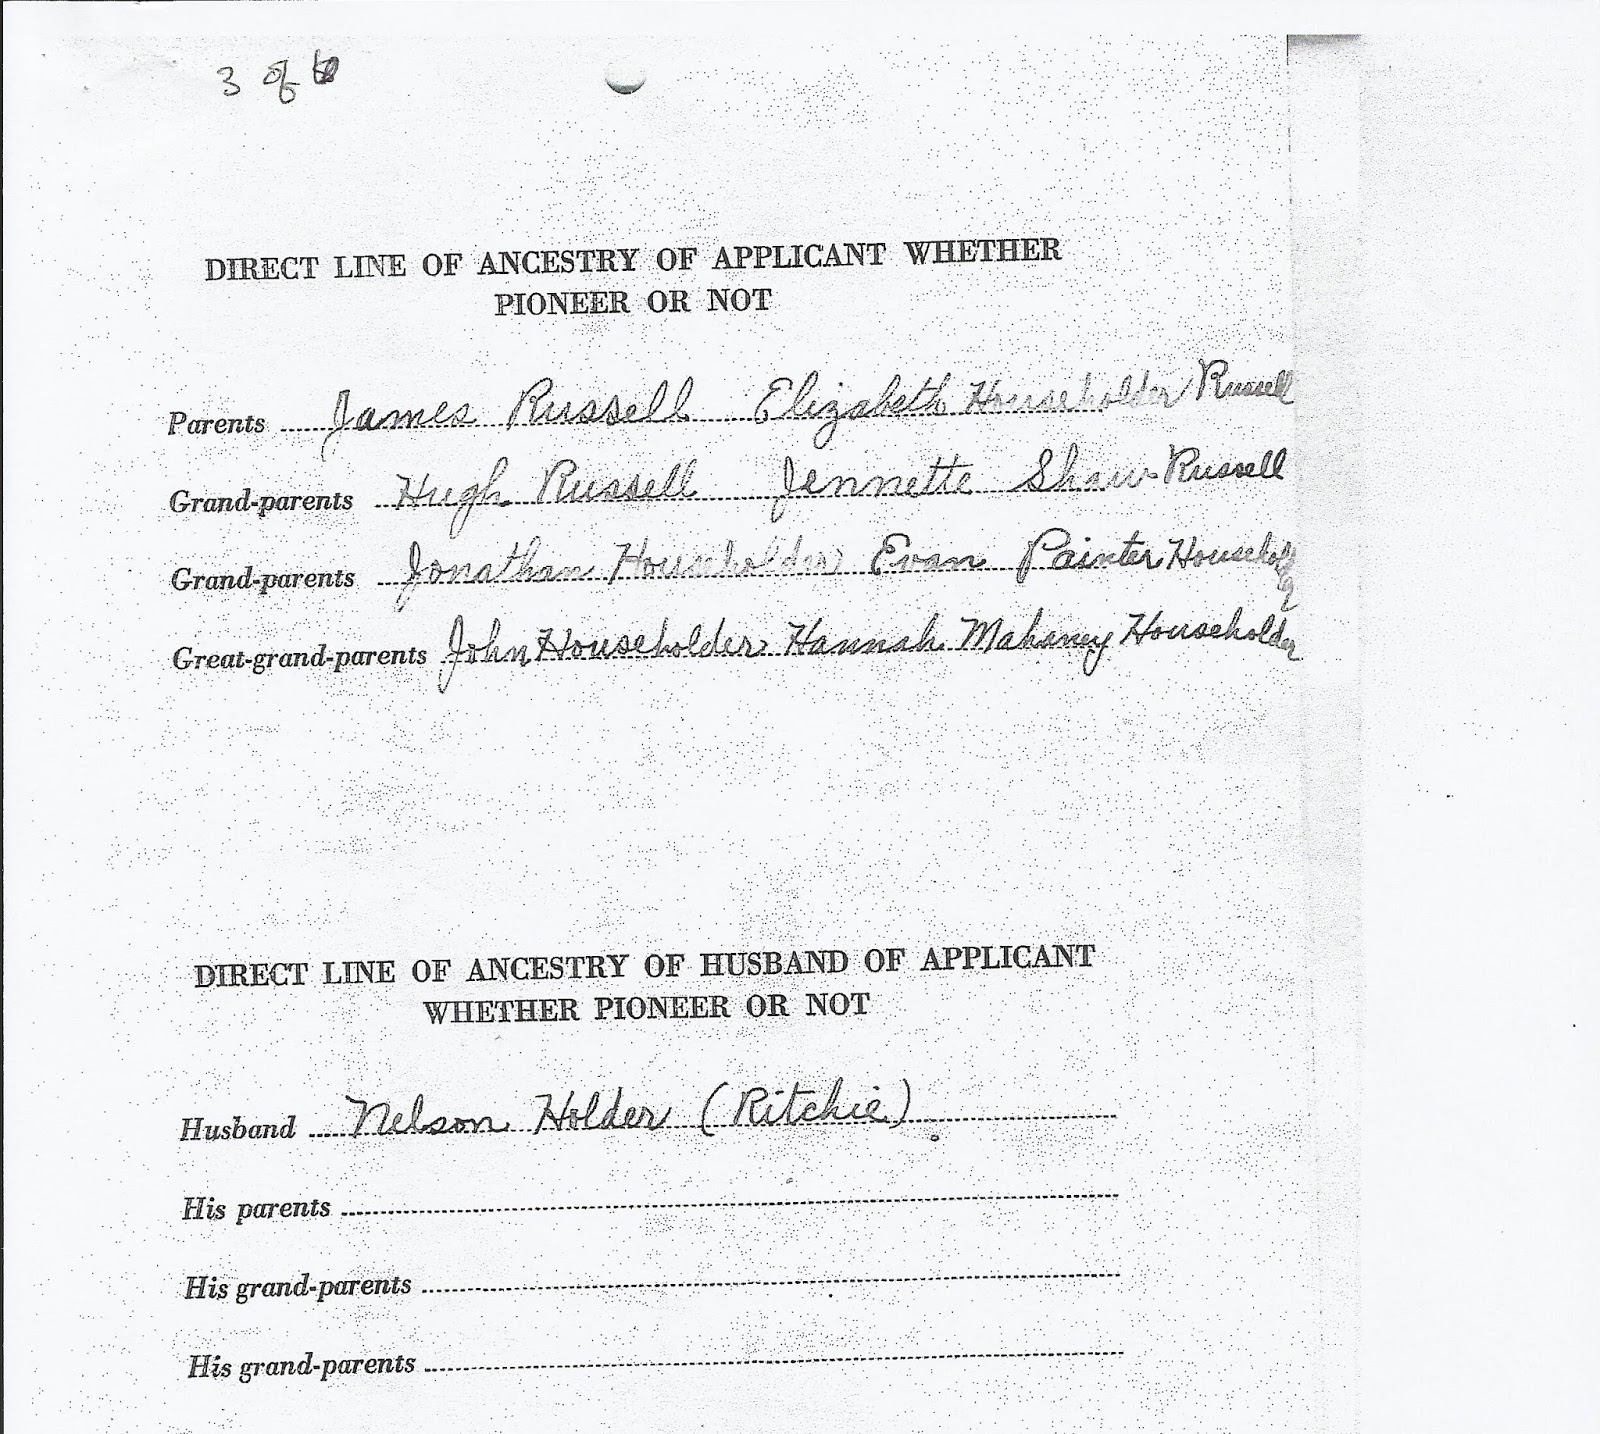 3 of
DIRECT LINE OF ANCESTRY OF APPLICANT WHETHER
PIONEER OR NOT
Parents James Russell Elizabeth Householder Russell
Grand-parents Hugh Russell Jennette Shaw Russell
Grand-parents Jonathan Householder Evan Painter Householder
Great-grand-parents John Householder Hannah Mahaney Householder
DIRECT LINE OF ANCESTRY OF HUSBAND OF APPLICANT
WHETHER PIONEER OR NOT
Husband Nelson Holder (Ritchie)
His parents
His grand-parents
His grand-parents